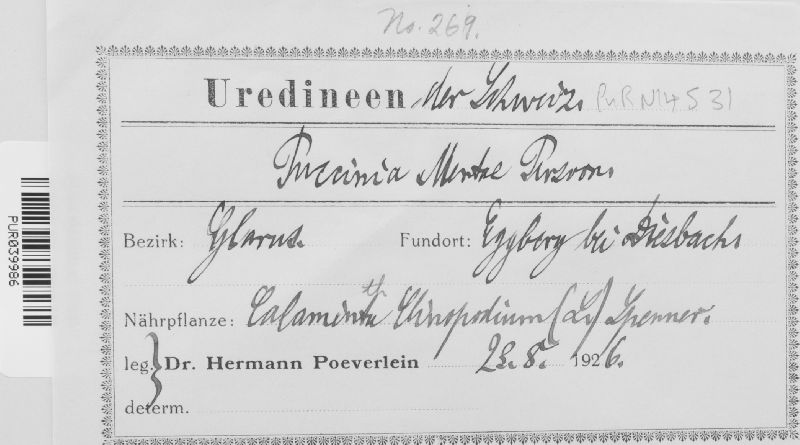 No. 269.
Uredineen der Schweiz. PUR N14531
Puccinia Mentae Persoon.
Bezirk: Glarus. Fundort: Eggberg bei Diesbach.
Nährpflanze: Calamintha Clinopodium (L.) Spenner.
leg. Dr. Hermann Poeverlein 8. 1926.
determ.
PUR039986